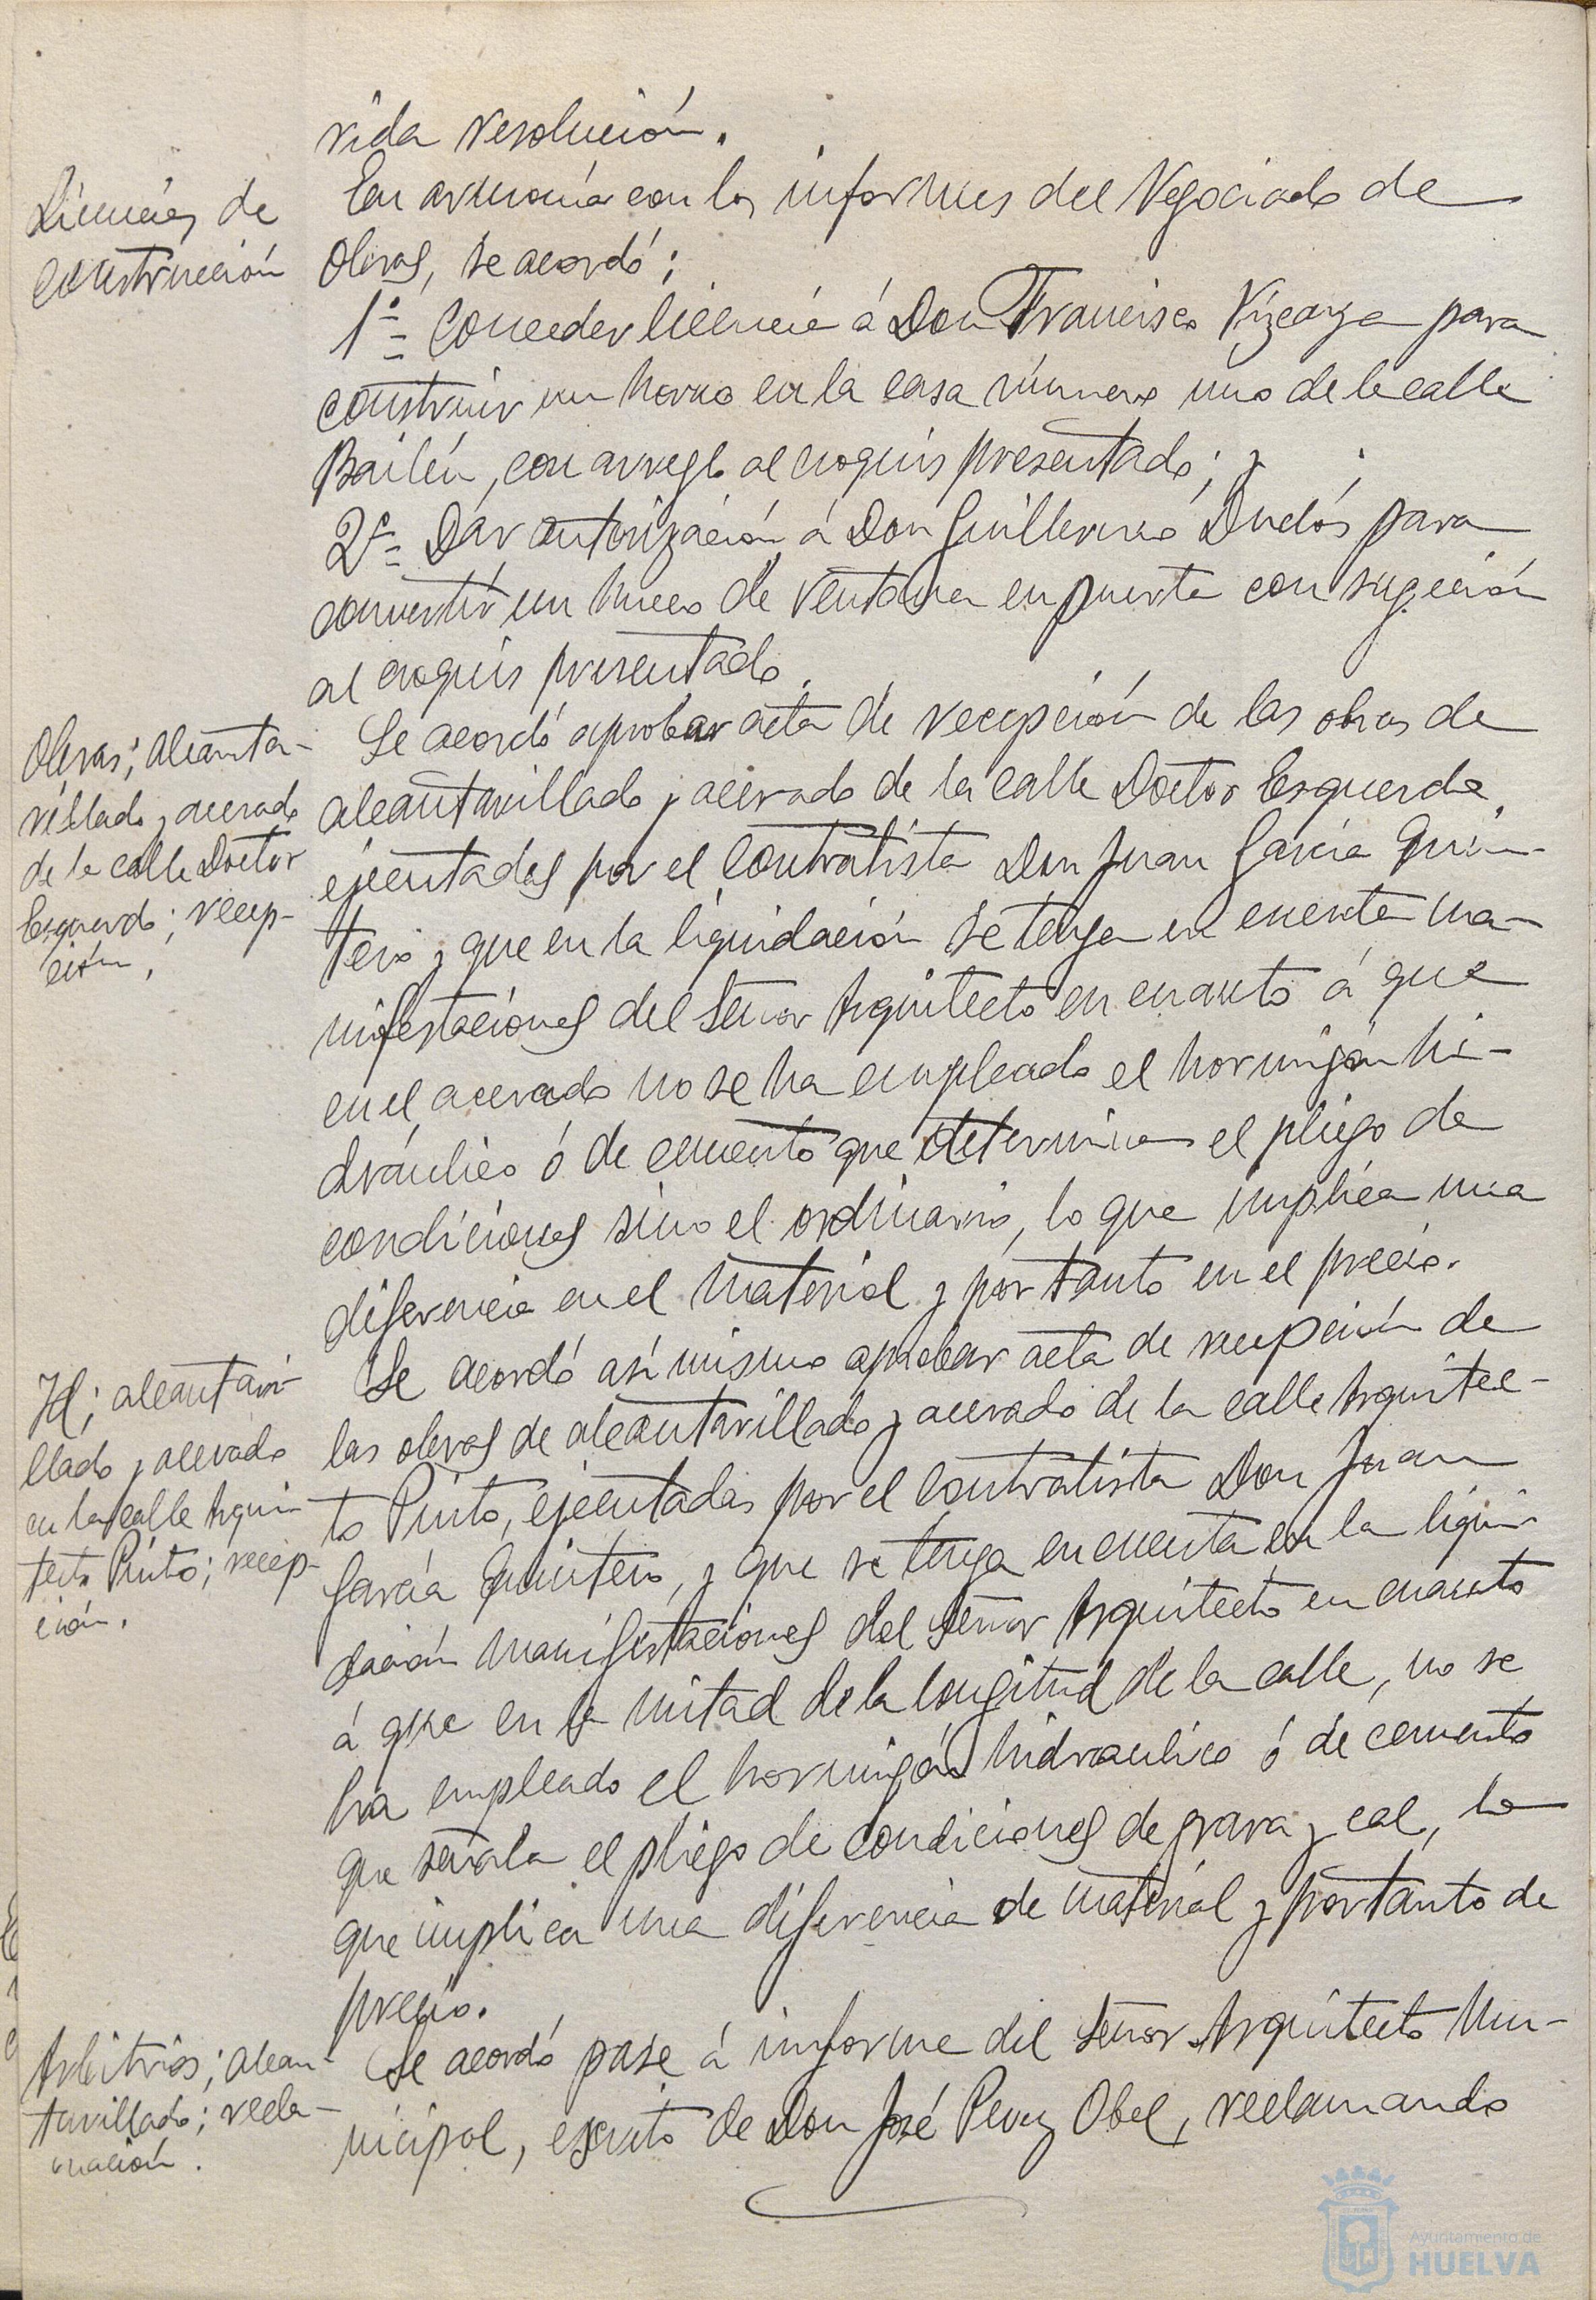 vida resolución.
Licencias de
construcción
En armonía con los informes del Negociado de
Obras, se acordó:
1º = Conceder licencia á Don Francisco Vizcaya para
construir un horno en la casa número uno de la calle
Bailén, con arreglo al croquis presentado; y
2º = Dár autorización á Don Guillermo Duclós para
convertir un hueco de ventana en puerta con sugeción
al croquis presentado.
Obras; alcanta-
rillado y acerado
de la calle Doctor
Esquerdo; recep-
ción.
Se acordó aprobar acta de recepción de las obras de
alcantarillado y acerado de la calle Doctor Esquerdo,
ejecutadas por el contratista Don Juan García Quin-
tero y que en la liquidación se tenga en cuenta ma-
nifestaciones del Señor Arquitecto en cuanto á que
en el acerado no se ha empleado el hormigón hi-
dráulico ó de cemento que determina el pliego de
condiciones sino el ordinario, lo que implica una
diferencia en el material y por tanto en el precio.
Id; alcantari-
llado y acerado
en la calle Arqui-
tecto Pinto; recep-
ción.
Se acordó así mismo aprobar acta de recepción de
las obras de alcantarillado y acerado de la calle Arquitec-
to Pinto, ejecutadas por el contratista Don Juan
García Quintero, y que se tenga en cuenta en la liqui-
dación manifestaciones del Señor Arquitecto en cuanto
á que en la mitad de la longitud de la calle, no se
ha empleado el hormigón hidraulico ó de cemento
que señala el pliego de condiciones de grava y cal, lo
que implica una diferencia de material y por tanto de
precio.
Arbitrios; alcan-
tarillado; recla-
mación.
Se acordó pase á informe del Señor Arquitecto Mu-
nicipal, escrito de Don José Perez Obel, reclamando
Ayuntamiento de
HUELVA